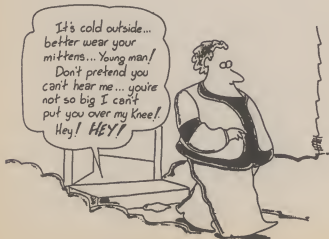 It's cold outside...
better wear your
mittens... Young man!
Don't pretend you
can't hear me... you're
not so big I can't
put you over my Knee!
Hey! HEY!